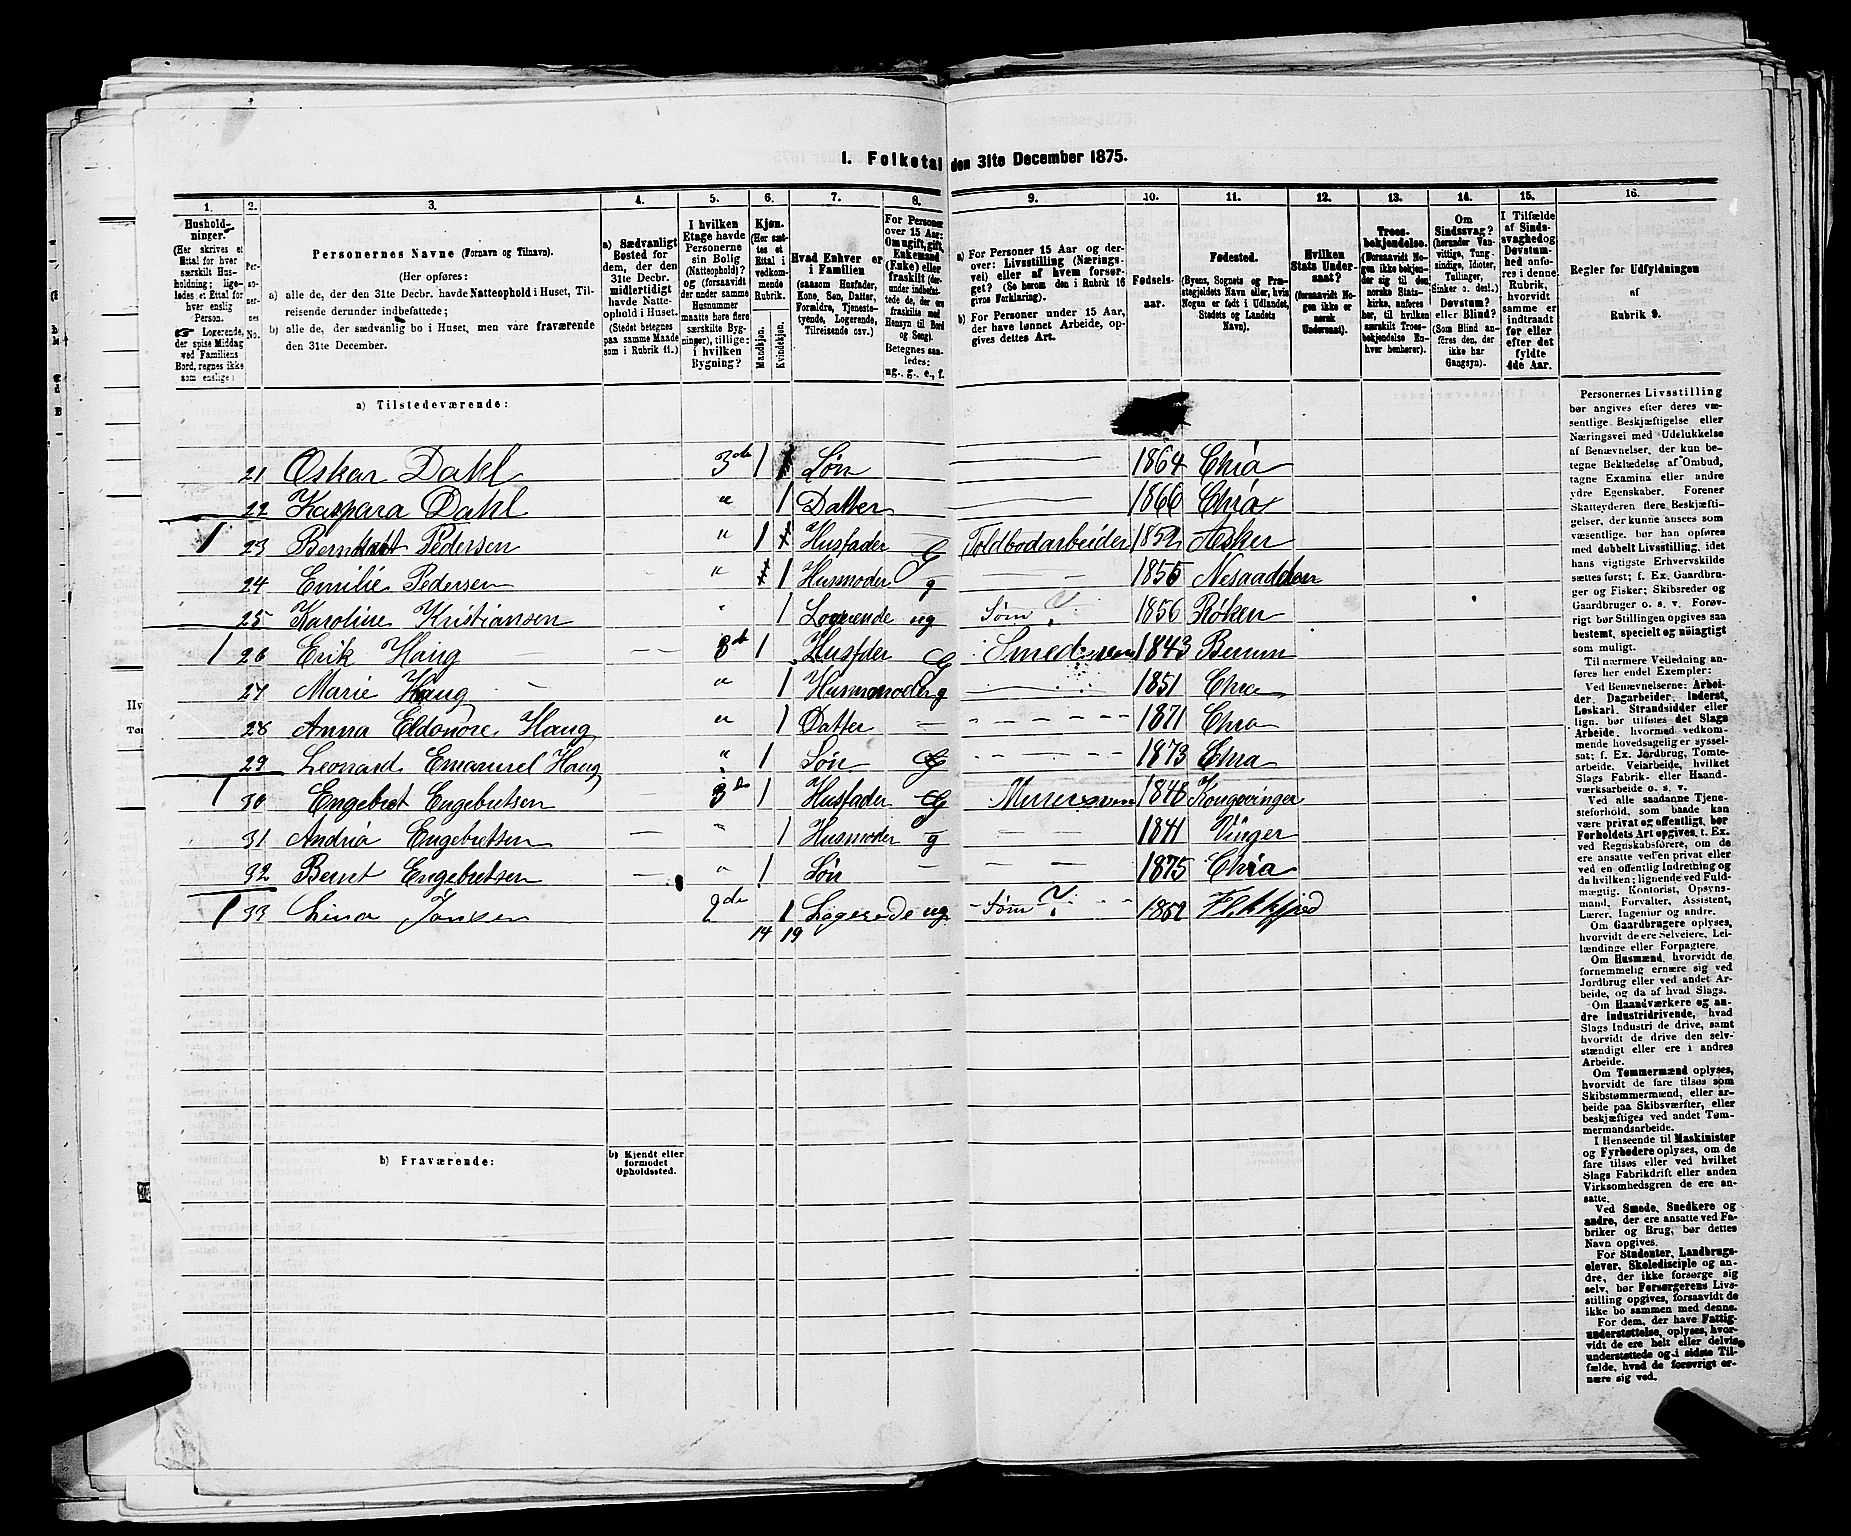 I. Folketal den 31te December 1875.
1. 2. 3. 4. 5. 6. 7. 8. 9. 10. 11. 12. 13. 14. 15. 16.
Husholdninger. (Her skrives et Ettal for hver særskilt Husholdning; ligeledes et Ettal for hver enslig Person. Logerende, der spise Middag ved Familiens Bord, regnes ikke som enslige)
Personernes No.
Personernes Navne (Fornavn og Tilnavn).
(Her opføres:
a) alle de, der den 31te Decbr. havde Natteophold i Huset, Tilreisende derunder indbefattede;
b) alle de, der sædvanlig bo i Huset, men vare fraværende den 31te December.
a) Sædvanligt Bosted for dem, der den 31te Decbr. midlertidigt havde Natteophold i Huset. (Stedet betegnes paa samme Maade som i Rubrik 11.)
I hvilken Etage havde Personerne sin Bolig (Natteophold)? og (forsaavidt der under samme Husnummer maatte høre flere særskilte Bygninger), tillige: i hvilken Bygning?
Kjøn. (Her sættes et Ettal i vedkommende Rubrik. Mandkjøn. Kvindekjøn.
Hvad Enhver er i Familien (saasom Husfader, Kone, Søn, Datter, Forældre, Tjenestetyende, Logerende, Tilreisende osv.)
For Personer over 15 Aar: Om ugift, gift, Enkemand (Enke) eller fraskilt (derunder indbefattede de, der ere fraskilte med Hensyn til Bord og Seng). Betegnes saaledes: ug., g., e., f.
a) For Personer 15 Aar og derover: Livsstilling (Næringsvei) eller af hvem forsørget? (Se herom den i Rubrik 16 givne Forklaring).
b) For Personer under 15 Aar, der have lønnet Arbeide, opgives dettes Art.
Fødselsaar.
Fødested. (Byens, Sognets og Præstegjeldets Navn eller, hvis Nogen er født i Udlandet, Stedets og Landets Navn).
Hvilken Stats Undersaat? (forsaavidt Nogen ikke er norsk Undersaat).
Troesbekjendelse. (Forsaavidt Nogen ikke bekjender sig til den norske Statskirke, anføres her, til hvilken særskilt Troesbekjendelse Enhver henhører).
Om Sindssvag? (herunder Vanvittige, Tungsindige, Idioter, Tullinger, Sinker o. desl.) Døvstum? eller Blind? (Som Blind anføres den, der ikke har Gangsyn).
I Tilfælde af Sindssvaghed og Døvstumhed anføres i denne Rubrik, hvorvidt samme er indtraadt før eller efter det fyldte 4de Aar.
Regler for Udfyldningen af Rubrik 9.
a) Tilstedeværende:
21 Oskar Dahl 3de 1 Søn 1864 Chria
22 Kaspara Dahl " 1 Datter 1866 Chria
1 23 Berndhart Pedersen " 1 Husfader G Toldbodarbeider 1852 Asker
24 Emilie Pedersen " 1 Husmoder g 1855 Nesaadden
25 Karoline Kristiansen " 1 Logrende ug Søm 1856 Røken
1 26 Erik Haug 3de 1 Husfder G Smedsven 1843 Berum
27 Marie Haug " 1 Husmmoder g 1851 Chria
28 Anna Eldonore Haug " 1 Datter 1871 Chra
29 Leonard Emanuel Haug " 1 Søn 1873 Chra
1 30 Engebret Engebretsen 3de 1 Husfader G Murersven 1848 Kongsvinger
31 Andria Engebretsen " 1 Husmoder g 1841 Vinger
32 Bernt Engebretsen " 1 Søn 1875 Chria
1 33 Lina Jonsen 2de 1 Logerede ug Søm 1852
14 19
b) Fraværende:
b) Kjendt eller formodet Opholdssted.
Personernes Livsstilling
bør angives efter deres væsentlige
Beskjæftigelse eller
Næringsvei med Udelukkelse
af Benævnelser, der kun betegne
Beklædelse af Ombud,
tagne Examina eller andre
ydre Egenskaber. Forener
Skatteyderen flere Beskjæftigelser,
der kunne ansees som
væsentlige, bør han opføres
med dobbelt Livsstilling, idet
hans vigtigste Erhvervskilde
sættes først; f. Ex. Gaardbruger
og Fisker; Skibsreder og
Gaardbruger o. s. v. Forøvrigt
bør Stillingen opgives saa
bestemt, specielt og nøiagtigt
som muligt.
Til nærmere Veiledning anføres
her endel Exempler:
Ved Benævnelserne: Arbeider,
Dagarbeider, Inderst,
Løskarl, Strandsidder eller
lign. bør tilføies det Slags
Arbeide, hvormed vedkommende
hovedsagelig er sysselsat;
f. Ex. Jordbrug, Tomtearbeide,
Veiarbeide, hvilket
Slags Fabrik- eller Haandværksarbeide
o. s. v.
Ved alle saadanne Tjenesteforhold,
som baade kan
være privat og offentligt, bør
Forholdets Art opgives, t. Ex.
ved Regnskabsførere, om de
ere ansatte ved en privat eller
ved en offentlig Indretning og
da hvilken; lignende ved Fuldmægtig,
Kontorist, Opsynsmand,
Forvalter, Assistent,
Lærer, Ingeniør og andre.
Om Gaardbrugere oplyses,
hvorvidt de ere Selveiere, Leilændinge
eller Forpagtere.
Om Husmænd, hvorvidt de
fornemmelig ernære sig ved
Jordbrug eller ved andet Arbeide,
og da af hvad Slags.
Om Haandværkere og andre
Industridrivende, hvad
Slags Industri de drive, samt
hvorvidt de drive den selvstændigt
eller ere i andres
Arbeide.
Om Tømmermænd oplyses,
hvorvidt de fare tilsøs som
Skibstømmermænd, eller arbeide
paa Skibsværfter, eller
beskjæftiges ved andet Tømmermandsarbeide.
I Henseende til Maskinister
og Fyrbødere oplyses, om de
fare tilsøs eller ved hvilket
Slags Fabrikdrift eller anden
Virksomhedsgren de ere ansatte.
Ved Smede, Snedkere og
andre, der ere ansatte ved Fabriker
og Brug, bør dettes
Navn opgives.
For Studenter, Landbrugselever,
Skoledisciple og andre,
der ikke forsørge sig
selv, bør Forsørgerens Livsstilling
opgives, forsaavidt de
ikke bo sammen med denne.
For dem, der have Fattigunderstøttelse,
oplyses, hvorvidt
de ere helt eller delvis
understøttede og i sidste Tilfælde,
hvad de forøvrigt ernære
sig ved.